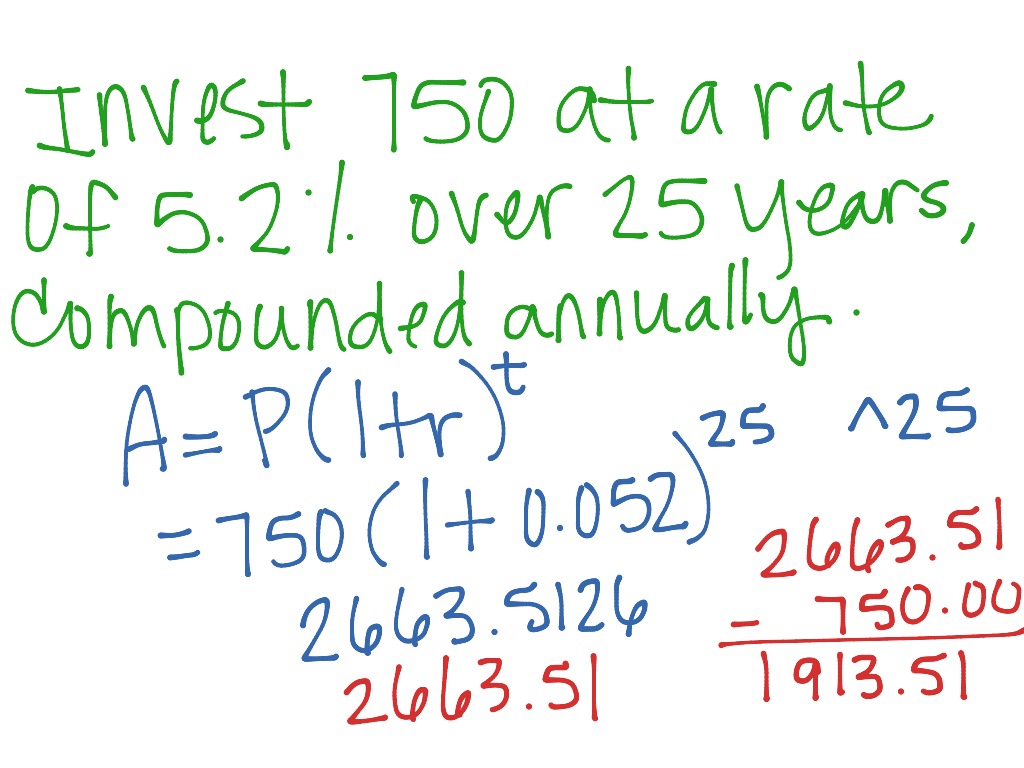 Invest 750 at a rate
of 5.2% over 25 years,
Compounded annually.
A = P(1+r)^t
= 750(1+0.052)^25 ^25
2663.5126
2663.51
2663.51
- 750.00
1913.51